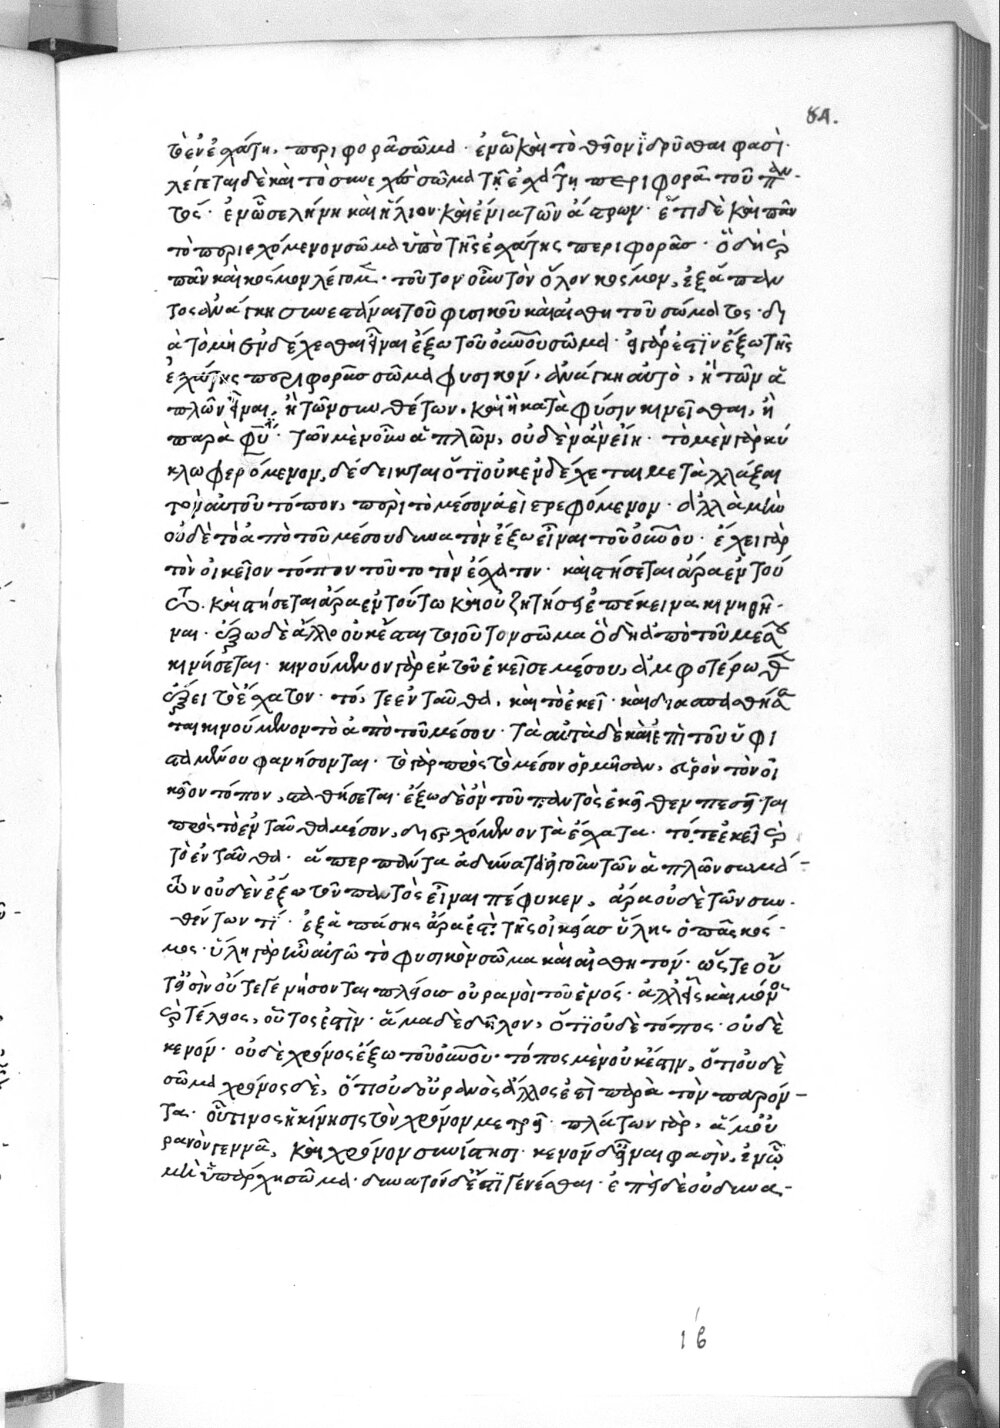 81.
τὸ ἐν ἐσχάτη περιφορᾶ σῶμα· ἐν ὧ καὶ τὸ θεῖον ἱδρῦσθαι φασί·
λέγεται δὲ καὶ τὸ συνεχὲς σῶμα τῆ ἐσχάτη περιφορᾶ τοῦ παν-
τός· ἐν ὧ σελήνη καὶ ἥλιος καὶ ἔνια τῶν ἄστρων· ἔτι δὲ καὶ πᾶν
τὸ περιεχόμενον σῶμα ὑπὸ τῆς ἐσχάτης περιφορᾶς· ὃ δὴ καὶ
πᾶν καὶ κόσμον λέγομεν· τοῦτον οὖν τὸν ὅλον κόσμον, ἐξ ἅπαν
τος ἀνάγκη συνεστάναι τοῦ φυσικοῦ καὶ αἰσθητοῦ σώματος· δι
ὰ τὸ μὴ ἐνδέχεσθαι εἶναι ἔξω τοῦ οὐρανοῦ σῶμα· εἰ γάρ ἐστιν ἔξω τῆς
ἐσχάτης περιφορᾶς σῶμα φυσικόν, ἀνάγκη αὐτὸ, ἢ τῶν ἁ
πλῶν εἶναι, ἢ τῶν συνθέτων, καὶ ἢ κατὰ φύσιν κινεῖσθαι, ἢ
παρὰ φύσιν· τῶν μὲν οὖν ἁπλῶν, οὐδὲν ἂν εἴη· τὸ μὲν γὰρ κύ
κλω φερόμενον, δέδεικται ὅτι οὐκ ἐνδέχεται μεταλλάξαι
τὸν αὐτοῦ τόπον, περὶ τὸ μέσον ἀεὶ στρεφόμενον· ἀλλὰ μὴν
οὐδὲ τὸ ἀπὸ τοῦ μέσου δυνατὸν ἔξω εἶναι τοῦ οὐρανοῦ· ἔχει γὰρ
τὸν οἰκεῖον τόπον τοῦτο τὸν ἔσχατον· καὶ στήσεται ἄρα ἐν τού
τω· καὶ στήσεται ἄρα ἐν τούτω καὶ οὐ ζητήσει ἐπέκεινα κινηθῆ-
ναι· ἔξω δὲ ἄλλο οὐκ ἔσται τοιοῦτον σῶμα ὃ δὴ ἀπὸ τοῦ μέσου
κινήσεται· κινούμενον γὰρ ἐκ τοῦ ἐκεῖσε μέσου, ἀμφοτέρωθεν
ἕξει τὸ ἔσχατον· τό, τε ἐνταῦθα, καὶ τὸ ἐκεῖ· καὶ διασπασθήσε
ται κινούμενον τὸ ἀπὸ τοῦ μέσου· τὰ αὐτὰ δὲ καὶ ἐπὶ τοῦ ὑφι
σταμένου φανήσονται· τὸ γὰρ πρὸς τὸ μέσον ὁρμῆσαν, εὑρὸν τὸν οἰ
κεῖον τόπον, σταθήσεται· ἔξω δὲ ὂν τοῦ παντὸς ἐκεῖθεν πεσεῖται
πρὸς τὸ ἐνταῦθα μέσον, διερχόμενον τὰ ἔσχατα· τό, τε ἐκεῖ καὶ
τὸ ἐνταῦθα· ἅπερ πάντα ἀδύνατα· εἰ γοῦν τῶν ἁπλῶν σωμά-
των οὐδὲν ἔξω τοῦ παντὸς εἶναι πέφυκεν, ἄρα οὐδὲ τῶν συν-
θέντων τί· ἐξ ἁπάσης ἄρα ἐστὶ τῆς οἰκείας ὕλης ὁ πᾶς κόσ-
μος· ὕλη γὰρ ἦν αὐτῶ τὸ φυσικὸν σῶμα καὶ αἰσθητόν· ὥστε οὔ
τε εἰσὶν οὔτε γενήσονται πλείους οὐρανοὶ τοῦ ἑνός· ἀλλ' εἷς καὶ μόνος
καὶ τέλειος, οὗτος ἐστίν· ἅμα δὲ δῆλον, ὅτι οὐδὲ τόπος· οὐδὲ
κενόν· οὐδὲ χρόνος ἔξω τοῦ οὐρανοῦ· τόπος μὲν οὐκ ἔστιν, ὅτι οὐδὲ
σῶμα χρόνος δὲ, ὅτι οὐδ' οὐρανὸς ἄλλος ἐστὶ παρὰ τὸν παρόν-
τα· οὗτινος ἡ κίνησις τὸν χρόνον μετρεῖ· πλάτων γὰρ, ἅμ' οὐ
ρανὸν γεννᾶ, καὶ χρόνον συνίστησι· κενὸν δ' εἶναι φασὶν, ἐν ὧ
μὴ ὑπάρχει σῶμα· δυνατὸν δ' ἐστὶ γενέσθαι· ἐπεὶ δὲ οὐ δυνα-
ιβ